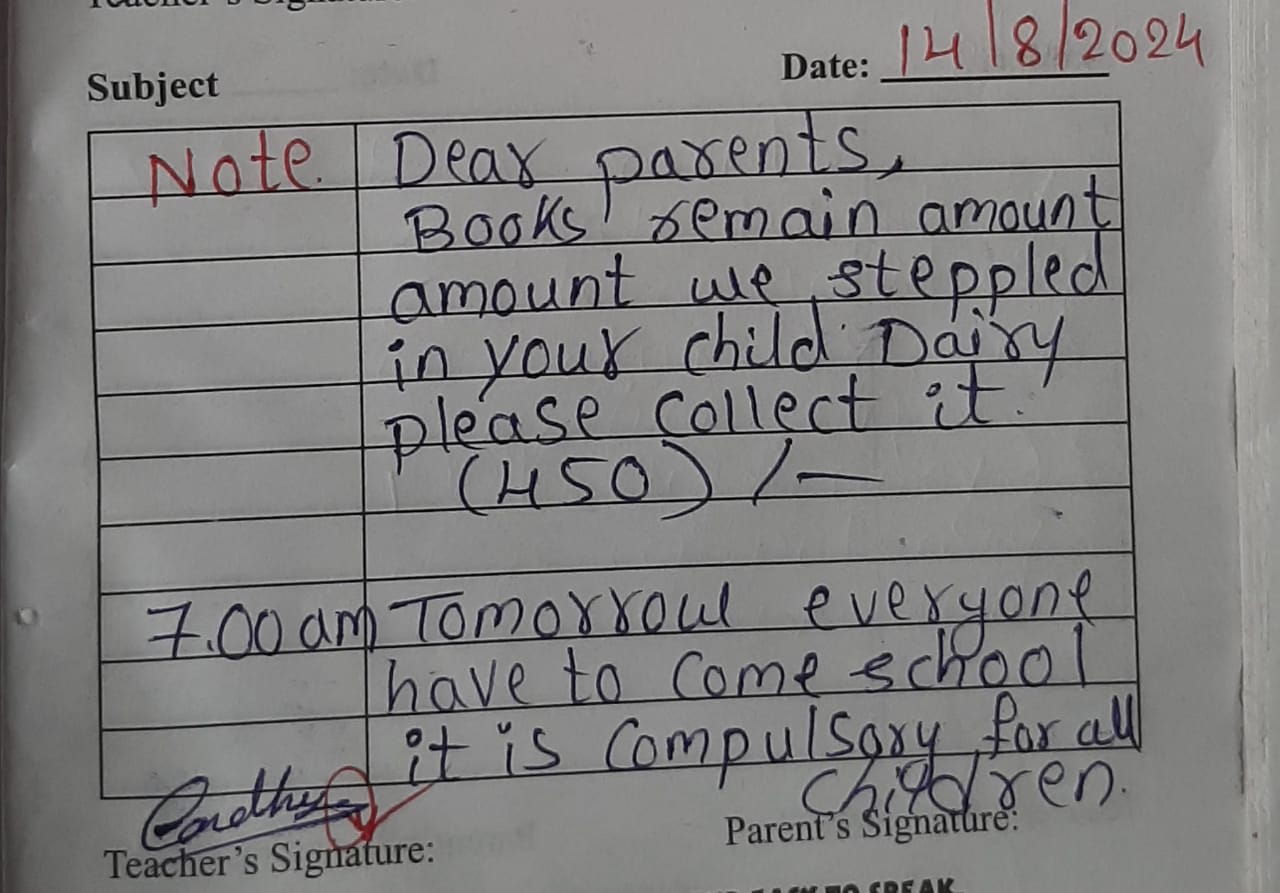 Teacher's Signature:
Subject
Date: 14/8/2024
Note. Dear parents,
Books remain amount
amount we steppled
in your child Dairy
please collect it.
(450) /-
7.00 am Tomorrow everyone
have to come school
it is compulsory for all
children.
Teacher's Signature:
Parent's Signature:
TO SPEAK